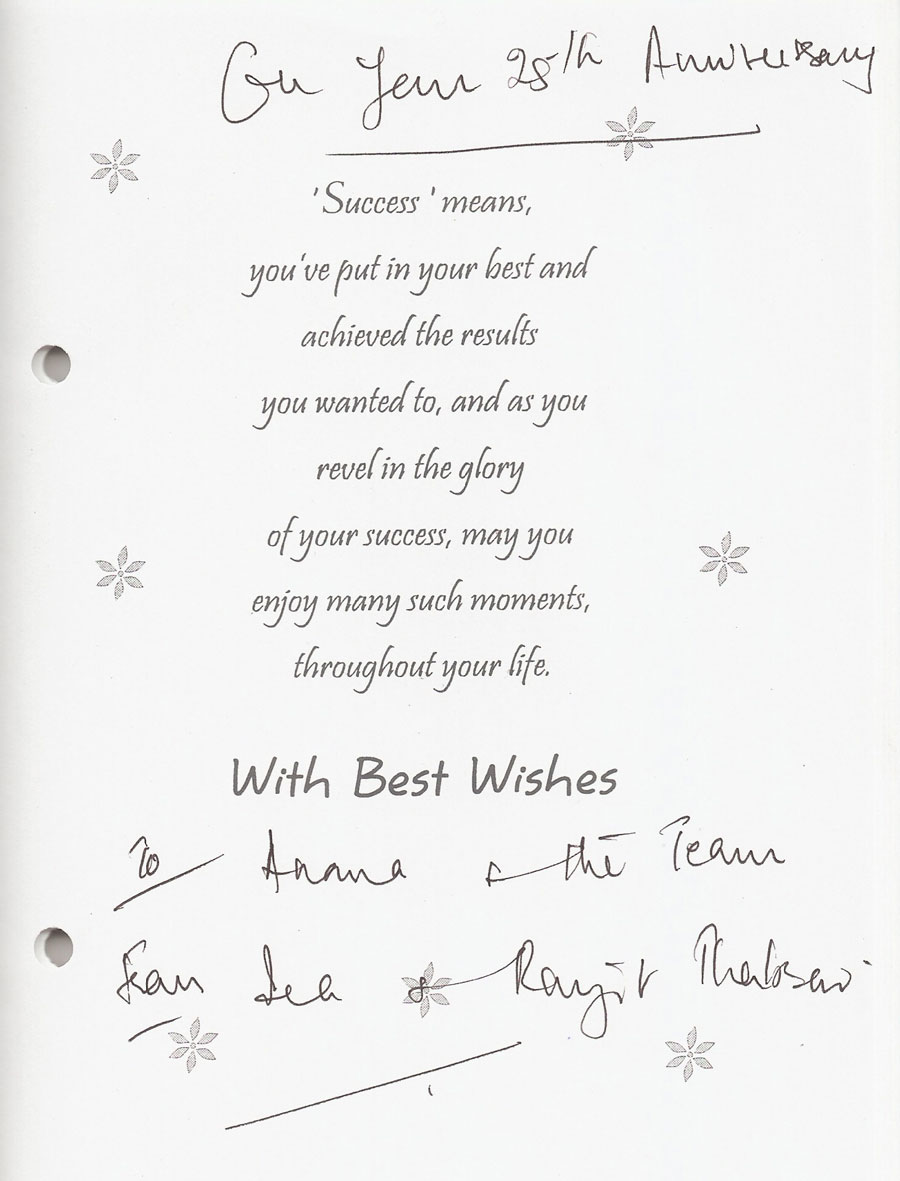 On Your 25th Anniversary
'Success' means,
you've put in your best and
achieved the results
you wanted to, and as you
revel in the glory
of your success, may you
enjoy many such moments,
throughout your life.
With Best Wishes
To & the Team
From & Ranjit